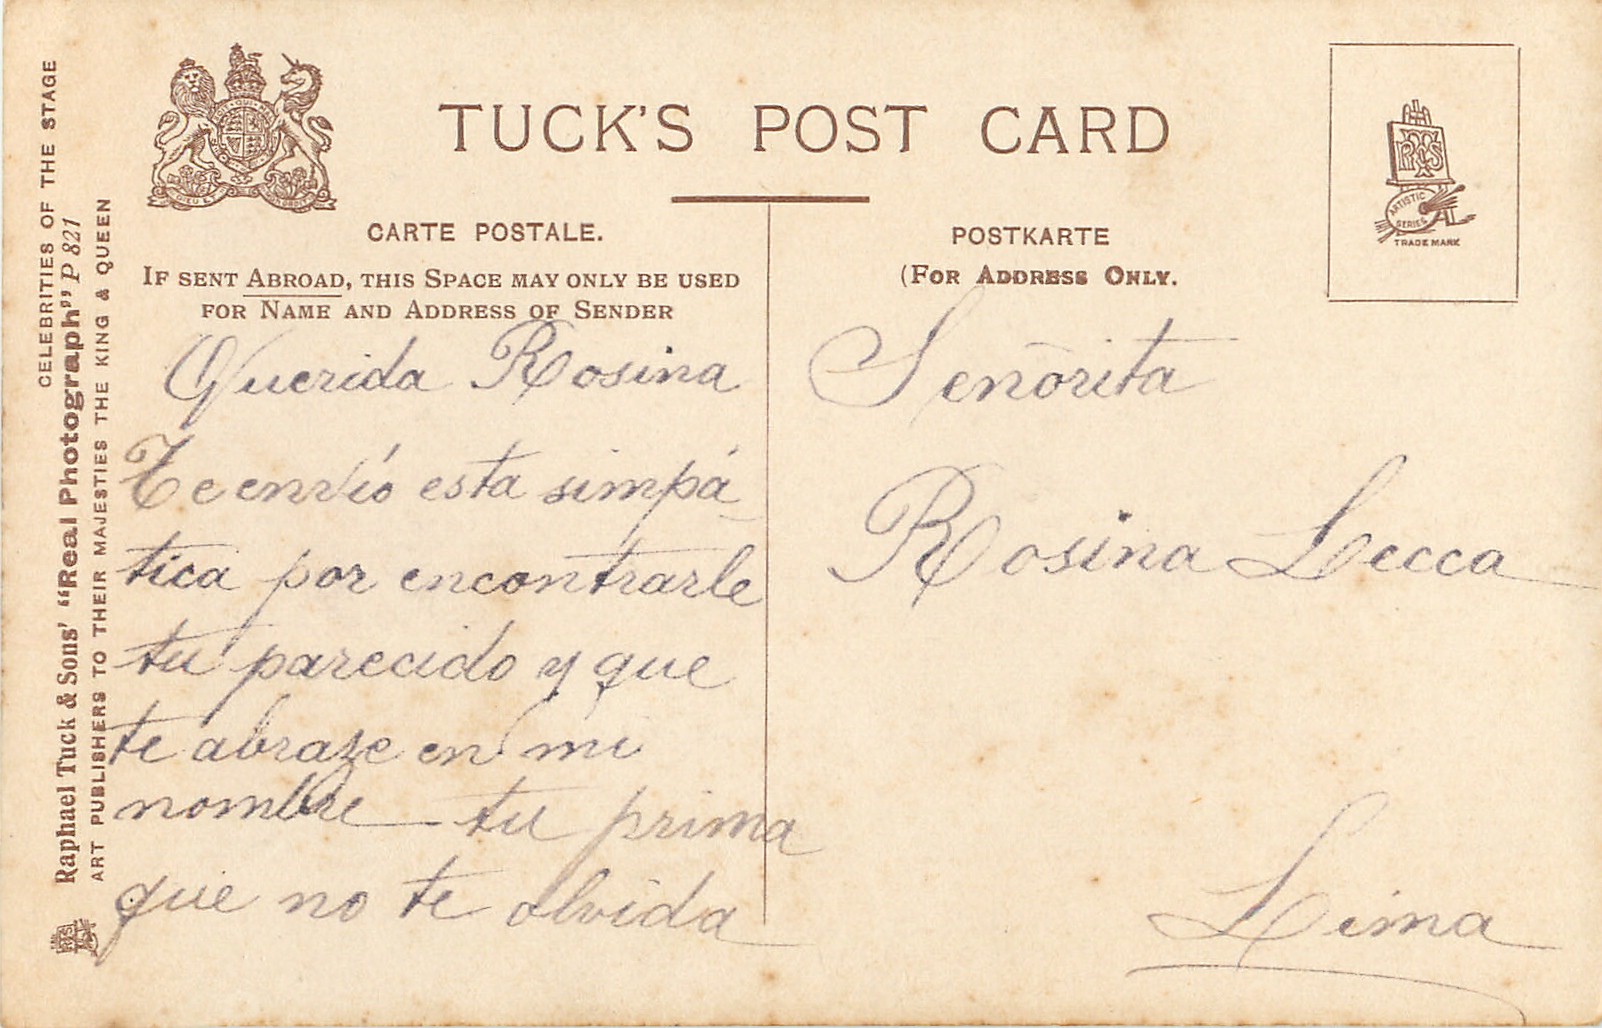 CELEBRITIES OF THE STAGE
Raphael Tuck & Sons' "Real Photograph" P 821
ART PUBLISHERS TO THEIR MAJESTIES THE KING & QUEEN
TUCK'S POST CARD
CARTE POSTALE.
IF SENT ABROAD, THIS SPACE MAY ONLY BE USED
FOR NAME AND ADDRESS OF SENDER
Querida Rosina
Te envío esta simpá
tica por encontrarle
tu parecido y que
te abraze en mi
nombre tu prima
que no te olvida
POSTKARTE
(FOR ADDRESS ONLY.
ARTISTIC
SERIES
TRADE MARK
Señorita
Rosina Lecca
Lima